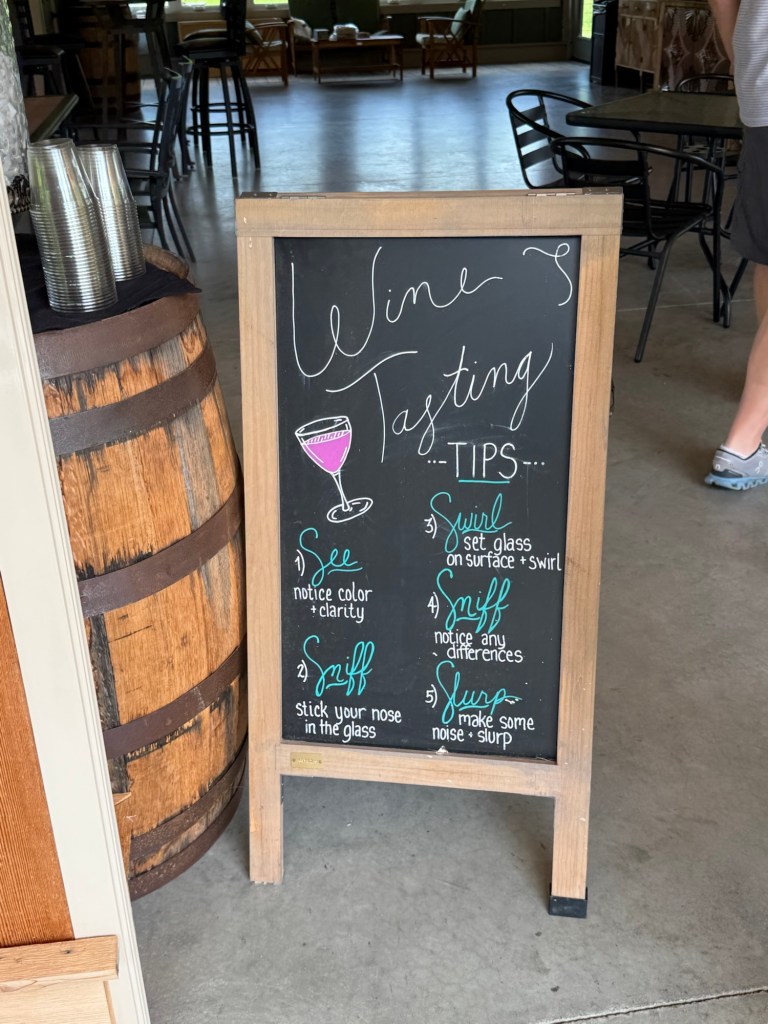 Wine
Tasting
--TIPS--
1) See
notice color
+ clarity
2) Sniff
stick your nose
in the glass
3) Swirl
set glass
on surface + swirl
4) Sniff
notice any
differences
5) Slurp
make some
noise + slurp